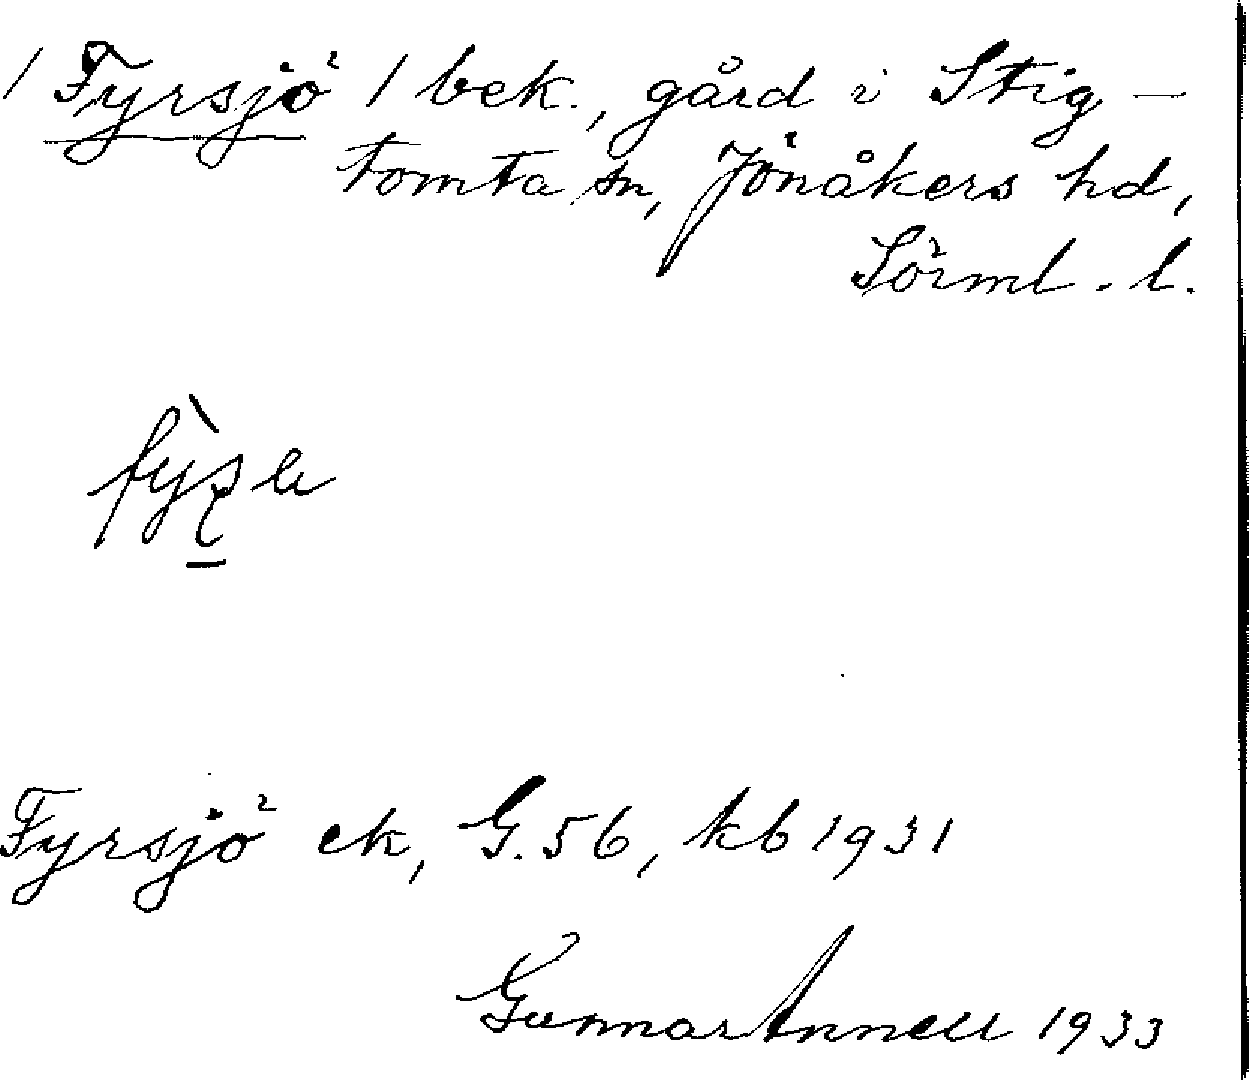 / Fyrsjö / bek., gård i Stig-
tomta sn, Jönåkers hd,
Sörml. l.
Fyrsjö ek, G. 56, kb 1931
Gunnar Annell 1933